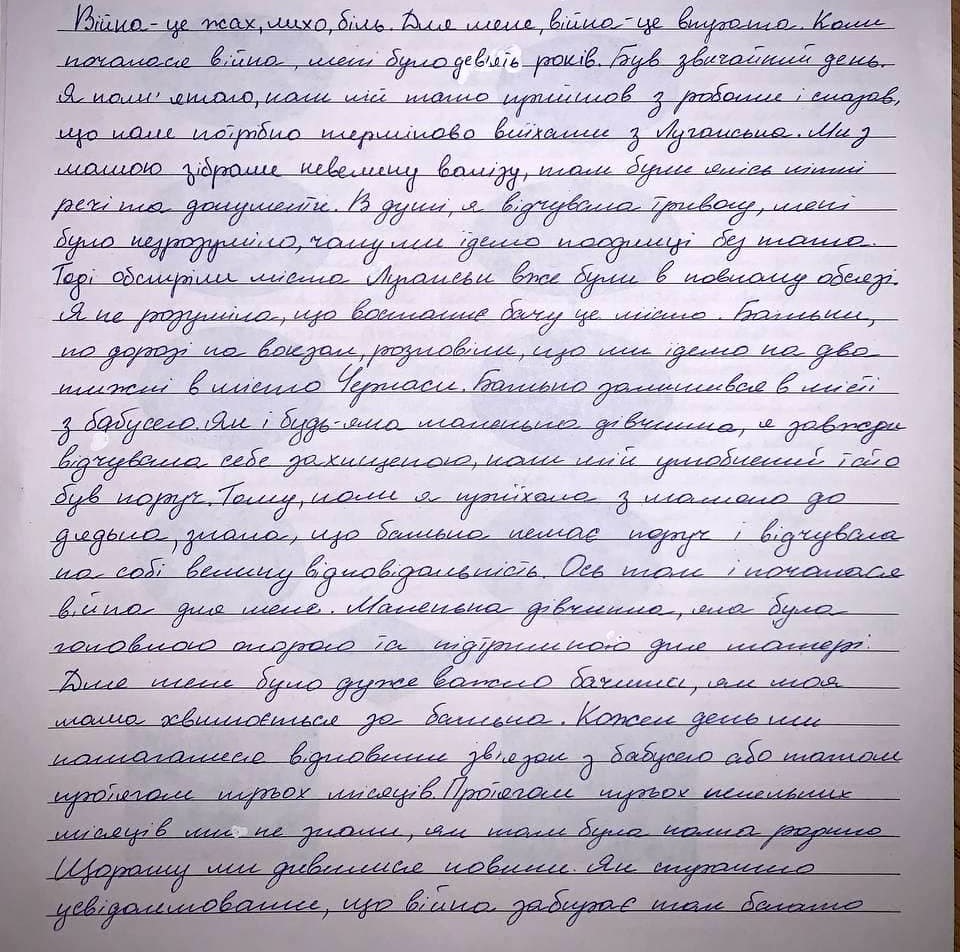 Війна - це жах, лихо, біль. Для мене, війна - це втрата. Коли
почалася війна, мені було дев'ять років. Був звичайний день.
Я пам'ятаю, коли мій тато прийшов з роботи і сказав,
що нам потрібно терміново виїхати з Луганська. Ми з
мамою зібрали невелику валізу, там були якісь літні
речі та документи. В душі, я відчувала тривогу, мені
було незрозуміло, чому ми їдемо наодинці без тата.
Тоді обстріли міста Луганськ вже були в повному обсязі.
Я не розуміла, що востаннє бачу це місто. Батьки,
по дорозі на вокзал, розповіли, що ми їдемо на два
тижні в місто Черкаси. Батько залишився в місті
з бабусею. Як і будь-яка маленька дівчинка, я завжди
відчувала себе захищеною, коли мій улюблений тато
був поруч. Тому, коли я приїхала з мамою до
дядька, знала, що батька немає поруч і відчувала
на собі велику відповідальність. Ось так і почалася
війна для мене. Маленька дівчинка, яка була
головною опорою та підтримкою для матері.
Для мене було дуже важко бачити, як моя
мама хвилюється за батька. Кожен день ми
намагалися відновити зв'язок з бабусею або татом
протягом трьох місяців. Протягом трьох пекельних
місяців ми не знали, як там була наша родина
Щоранку ми дивилися новини. Як страшно
усвідомлювати, що війна забирає так багато